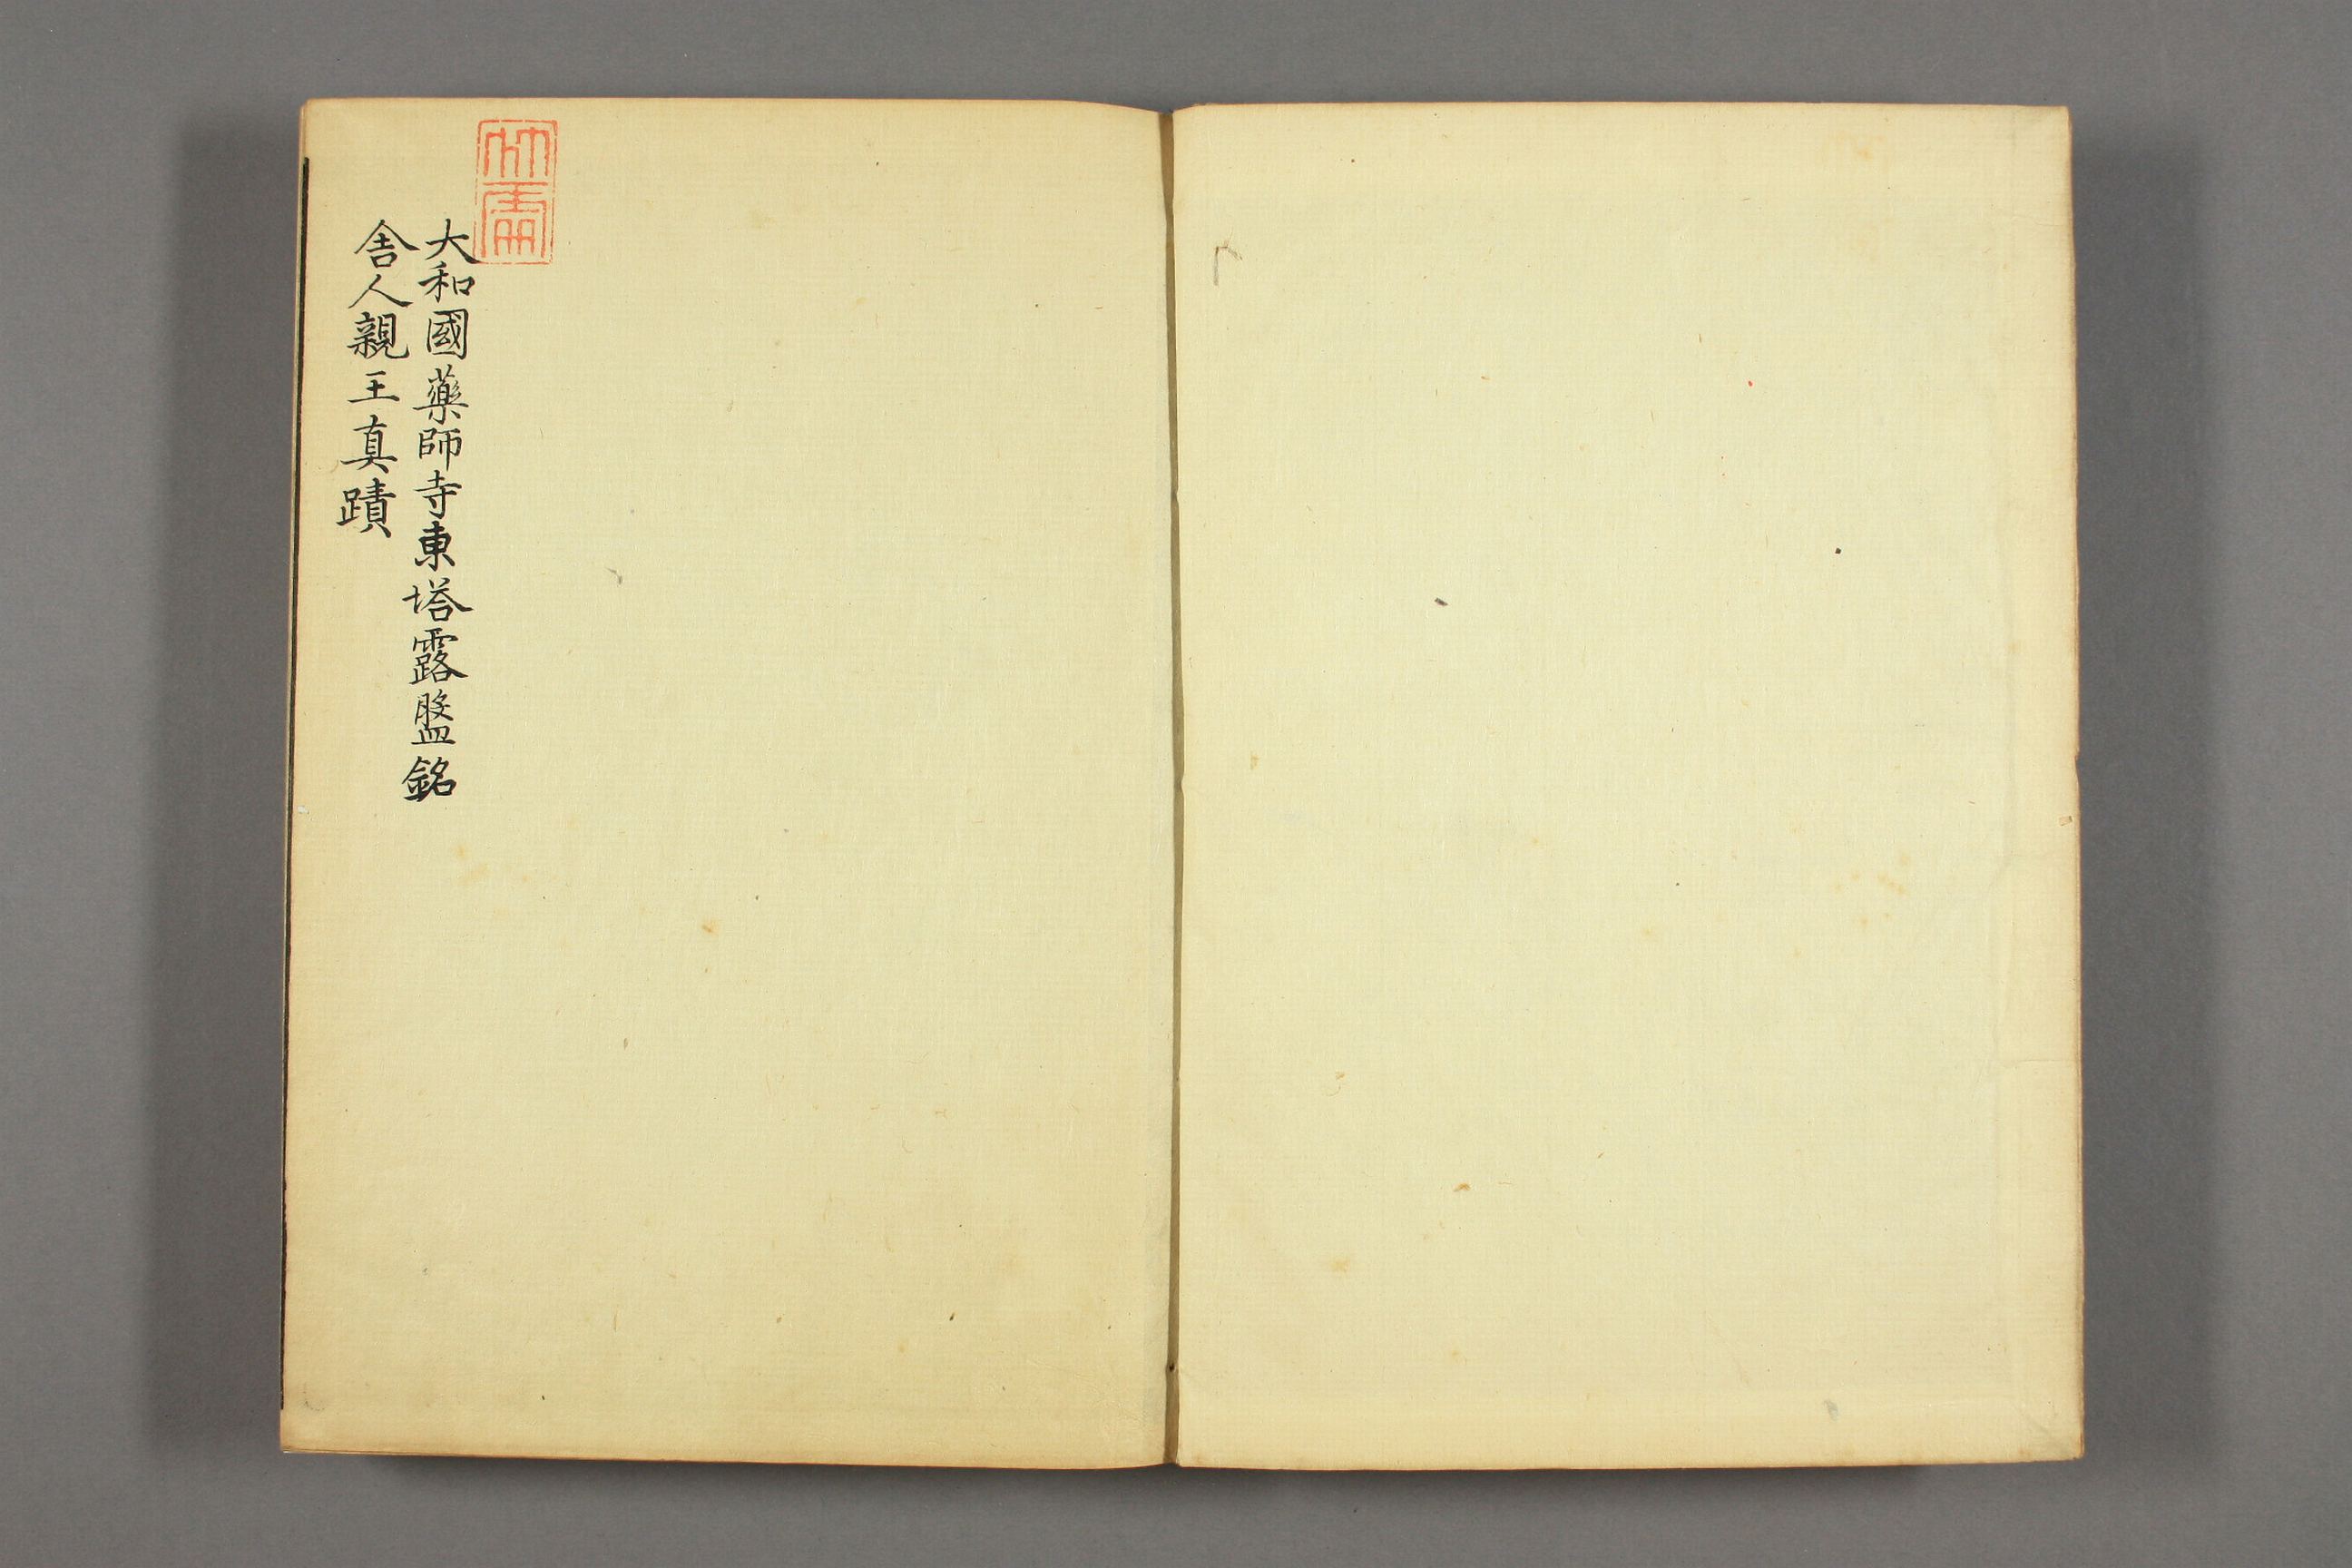 大和國藥師寺東塔露盤銘
舎人親王真蹟